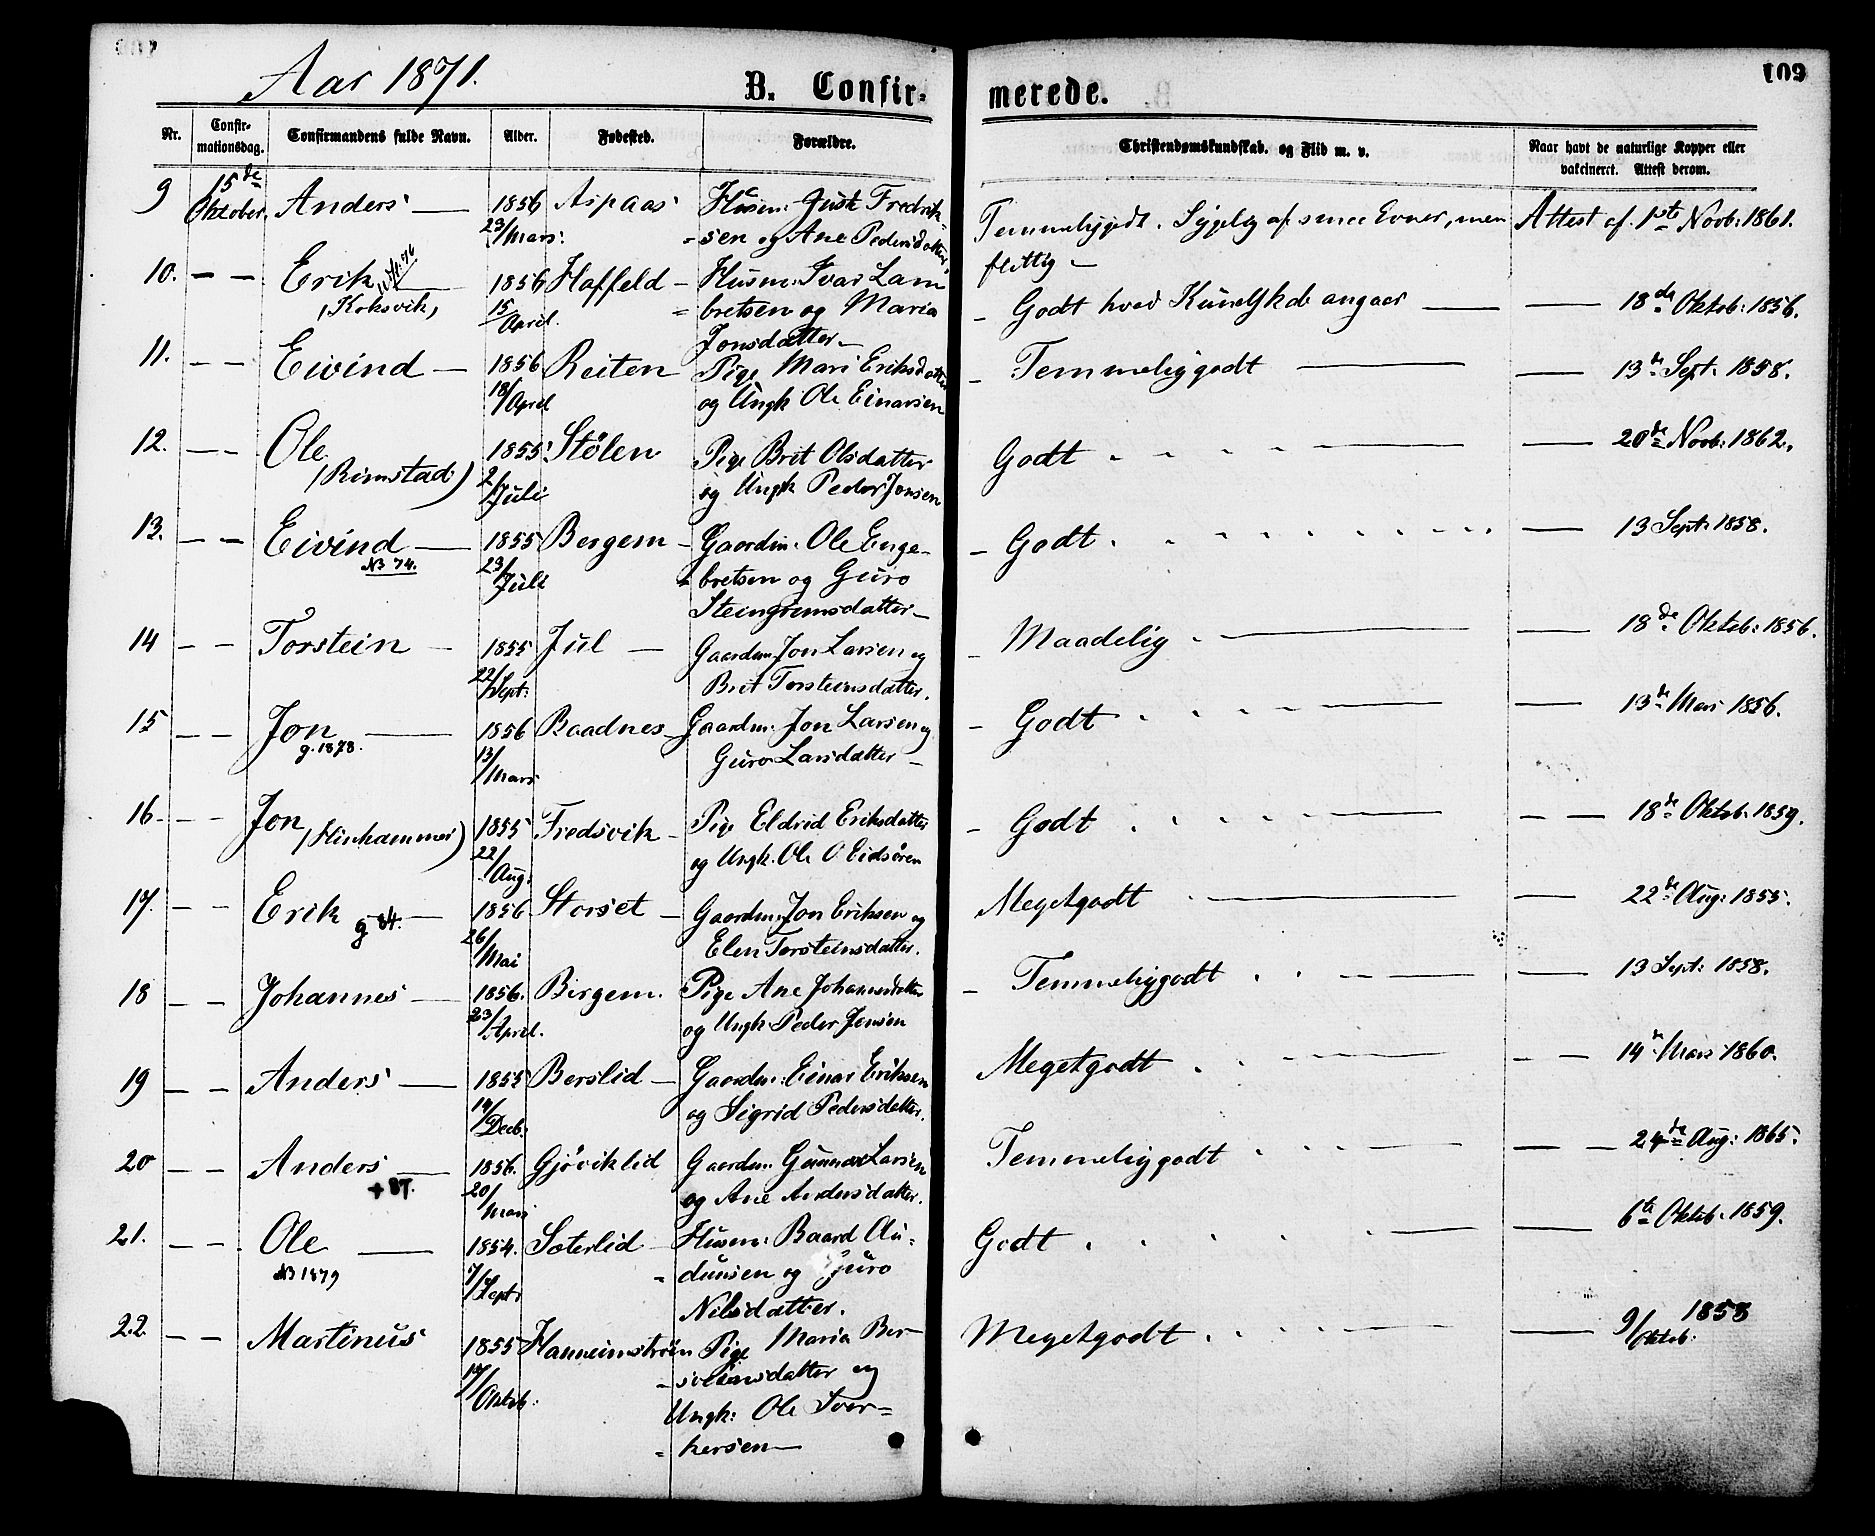 109
Aar 1871.
B. Confir-
merede.
Nr.
Confir-
mationsdag.
Confirmandens fulde Navn.
Alder.
Fødested.
Forældre.
Christendomskundskab, og Flid m. v.
Naar havt de naturlige Kopper eller
vakcineret. Attest derom.
9 15de Oktober. Anders — 1856 23/Mars. Aspaas Husm. Gust Fredrik-
sen og Ane Pedersdatter
Temmeligodt. Sygelig af smaa Evner, men
flittig —
Attest af 1ste Novb: 1861.
10. — — Erik (Koksvik) 1856 15/April. Haffeld — Husm: Ivar Lam
= bretsen og Maria
Jonsdatter —
- Godt hvad Kundskab angaar — — 18de Oktob: 1856.
11. — — Eivind — 1856 18/April Reiten Pige Mari Eriksdatter
og Ungk Ole Einarsen
- Temmeligodt — — 13de Sept: 1858.
12. — — Ole (Rimstad) 1855 2/Juli Stölen Pige Brit Olsdatter
og Ungk Peder Jonsen
Godt — — 20de Novb: 1862.
13. — — Eivind — NB 74. 1855 23/Juli Bergem — Gaardm: Ole Enge-
= bretsen og Guro
Steingrimsdatter —
- Godt. — 13 Sept: 1858.
14 — — Torstein — 1855 22/Sept: Jul — Gaardm Jon Larsen og
Brit Torsteinsdatter.
- Maadelig — — 18de Oktob: 1856.
15 — — Jon — g. 1878. 1856 13/Mars Baadnes — Gaardm. Jon Larsen og
Guro Larsdatter —
- Godt — — 13de Mars 1856.
16 — — Jon (Hinhammer) 1855 22/Aug: Fredsvik — Pige Eldrid Eriksdatter
og Ungk. Ole O Eidsören
- Godt — — — 18de Oktob. 1859.
17. — — Erik g 84. — 1856 26/Mai Storset — Gaardm: Jon Eriksen og
Elen Torsteinsdatter.
Megetgodt — — 22de Aug: 1855.
18 — — Johannes — 1856. 23/April. Bergem. Pige Ane Johannesdatter
og Ungk: Peder Jonsen
- Temmeligodt — — 13 Sept: 1858.
19 — — Anders — 1855 14/Decb: Berslid — Gaardm: Einar Eriksen
og Sigrid Pedersdatter.
Megetgodt — — — 14de Mars 1860.
20 — — Anders — + 87. 1856. 20/Mars Gjöviklid Gaardm: Gunnar Larsen
og Ane Andersdatter.
Temmeligodt — — — 24de Aug: 1865.
21. — — Ole — NB 1879 1854. 7/Sept: Sæterlid — Husm: Baard Au=
= dunsen og Guro
Nilsdatter.
Godt — — 6te Oktob: 1859.
22. — — Martinus 1855 17/Oktob: Hanneimströen Pige Maria Ber-
= sveinsdatter og
Ungk: Ole Sver=
= kersen —
Megetgodt — — 9/Oktob: 1858